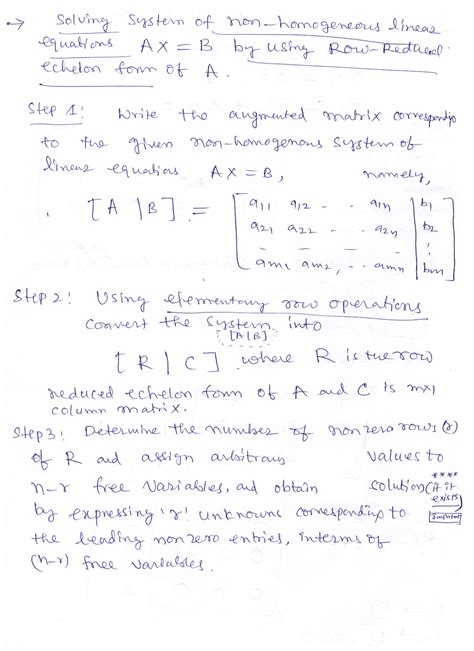 → Solving System of non-homogeneous linear
equations AX = B by using Row-Reduced
echelon form of A.
Step 1: Write the augmented matrix correspondip
to the given non-homogenous system of
linear equations AX = B, namely,
[A | B] = [ a11 a12 . . a1n | b1
a21 a22 . . . a2n | b2
– – – – | ⋮
am1 am2, . . amn | bm ]
Step 2: Using elementary row operations
convert the system [A|B] into
[R | C] where R is the row
reduced echelon form of A and C is mx1
column matrix.
Step 3: Determine the number of nonzero rows (r)
of R and assign arbitrary values to
n-r free variables, and obtain solution (if it exists)
****
by expressing 'r' unknowns correspondip to
the leading nonzero entries, interms of
(n-r) free variables.